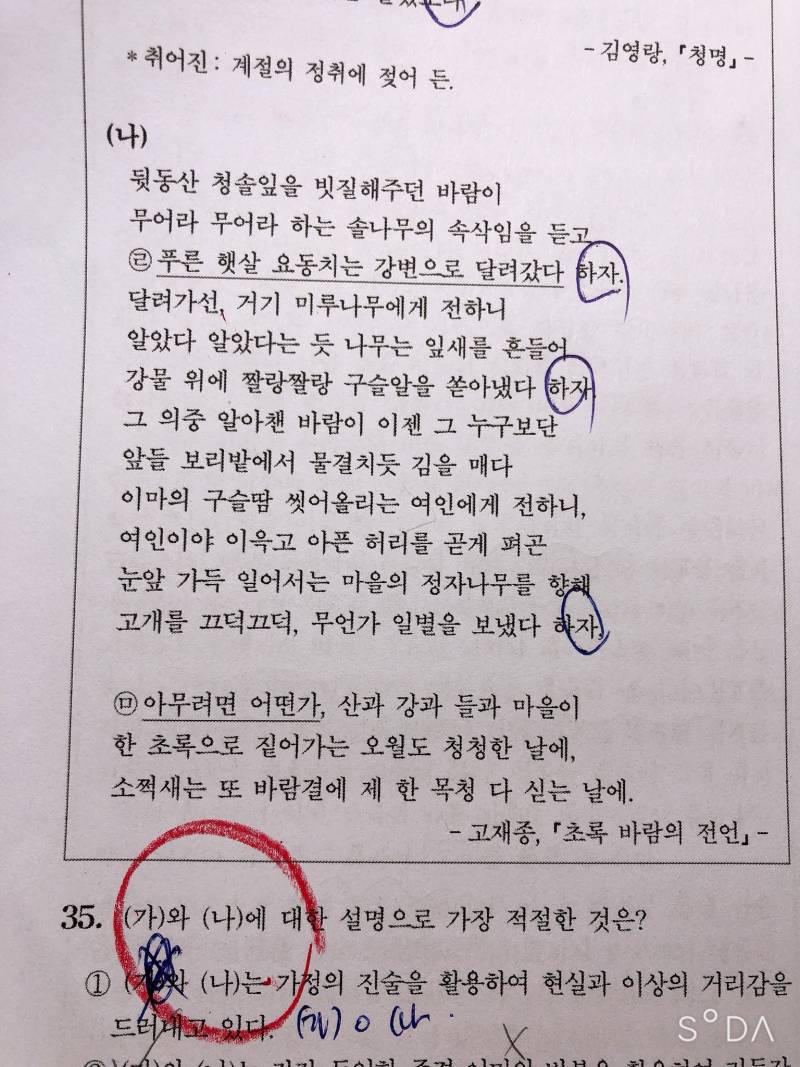 * 취어진 : 계절의 정취에 젖어 든.
- 김영랑, 「청명」 -
(나)
뒷동산 청솔잎을 빗질해주던 바람이
무어라 무어라 하는 솔나무의 속삭임을 듣고
㉣ 푸른 햇살 요동치는 강변으로 달려갔다 하자.
달려가선, 거기 미루나무에게 전하니
알았다 알았다는 듯 나무는 잎새를 흔들어
강물 위에 짤랑짤랑 구슬알을 쏟아냈다 하자.
그 의중 알아챈 바람이 이젠 그 누구보단
앞들 보리밭에서 물결치듯 김을 매다
이마의 구슬땀 씻어올리는 여인에게 전하니,
여인이야 이윽고 아픈 허리를 곧게 펴곤
눈앞 가득 일어서는 마을의 정자나무를 향해
고개를 끄덕끄덕, 무언가 일별을 보냈다 하자.
㉤ 아무려면 어떤가, 산과 강과 들과 마을이
한 초록으로 짙어가는 오월도 청청한 날에,
소쩍새는 또 바람결에 제 한 목청 다 싣는 날에.
- 고재종, 「초록 바람의 전언」 -
35. (가)와 (나)에 대한 설명으로 가장 적절한 것은?
① (가)와 (나)는 가정의 진술을 활용하여 현실과 이상의 거리감을
드러내고 있다.
SODA